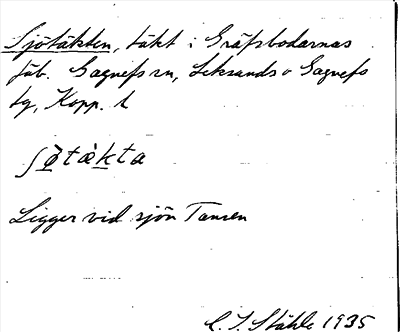 Sjötäkten, täkt i Gräfsbodarnas
fäb. Gagnefs sn, Leksands o Gagnefs
tg, Kopp. l
ʃø̀tàkta
Ligger vid sjön Tansen
C. I. Ståhle 1935